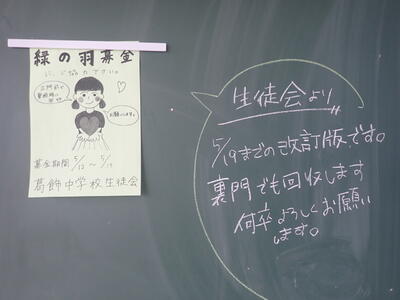 緑の羽募金
にご協力下さい。
お願いします。
募金期間 5/12〜5/19
葛飾中学校生徒会
生徒会より
5/19までの改訂版です。
裏門でも回収します
何卒よろしくお願い
します。